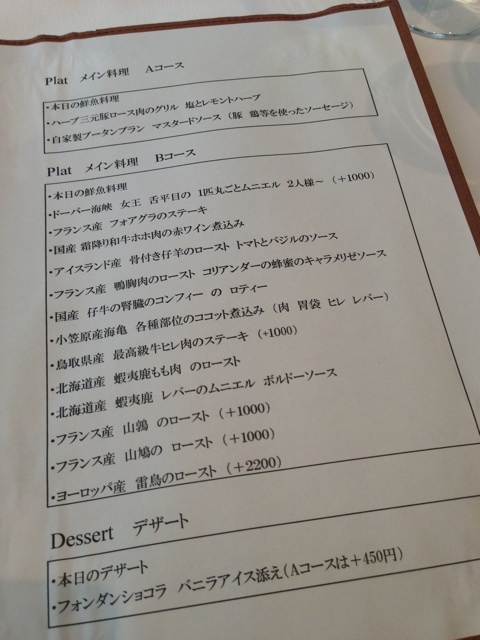 Plat メイン料理 Aコース
・本日の鮮魚料理
・ハーブ三元豚ロース肉のグリル 塩とレモントハーブ
・自家製ブータンブラン マスタードソース（豚 鶏等を使ったソーセージ）
Plat メイン料理 Bコース
・本日の鮮魚料理
・ドーバー海峡 女王 舌平目の 1匹丸ごとムニエル 2人様～（+1000）
・フランス産 フォアグラのステーキ
・国産 霜降り和牛ホホ肉の赤ワイン煮込み
・アイスランド産 骨付き仔羊のロースト トマトとバジルのソース
・フランス産 鴨胸肉のロースト コリアンダーの蜂蜜のキャラメリゼソース
・国産 仔牛の腎臓のコンフィー の ロティー
・小笠原産海亀 各種部位のココット煮込み（肉 胃袋 ヒレ レバー）
・鳥取県産 最高級牛ヒレ肉のステーキ（+1000）
・北海道産 蝦夷鹿もも肉 のロースト
・北海道産 蝦夷鹿 レバーのムニエル ボルドーソース
・フランス産 山鶉 のロースト（+1000）
・フランス産 山鳩の ロースト（+1000）
・ヨーロッパ産 雷鳥のロースト（+2200）
Dessert デザート
・本日のデザート
・フォンダンショコラ バニラアイス添え(Aコースは＋450円)